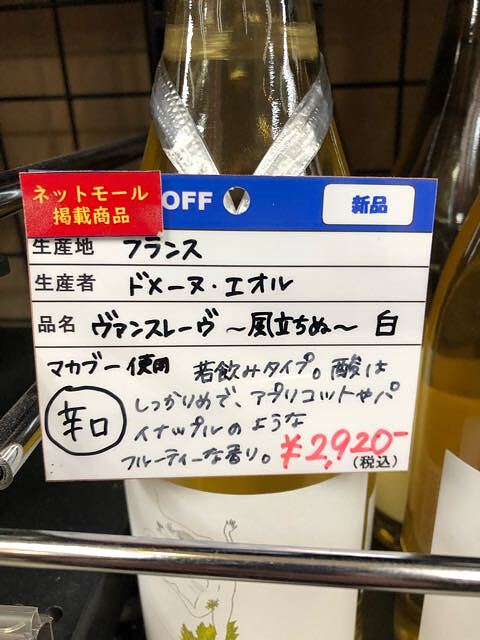 ネットモール
掲載商品
OFF
新品
生産地 フランス
生産者 ドメーヌ・エオル
品名 ヴァンスレーヴ ～風立ちぬ～ 白
マカブー使用 若飲みタイプ。酸は
辛口 しっかりめで、アプリコットやパ
イナップルのような
フルーティーな香り。
¥2,920-
(税込)